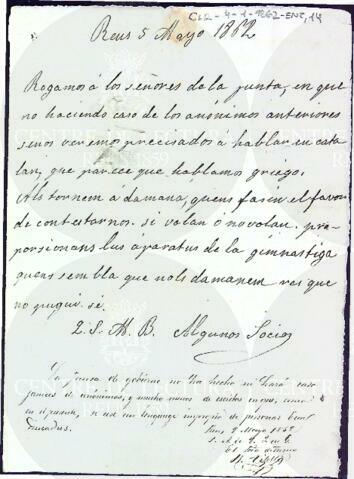 CLR-4-1-1862-ENT, 14
Reus 5 Mayo 1862
Rogamos á los señores de la junta, en que
no haciendo caso de los anónimos anteriores
senos veremo preccisados á hablar en cata
lan, que parece que hablamos griego.
Als tornem á damaná, quens fasin el favor
de contestarnos si volan ó no volan, pro-
porsionans lus aparatus de la gimnastiga
quens sembla que nols damanem res que
no pugui sé.
Q. S. M. B. Algunos Socios
La Junta de gobierno no ha hecho ni hará caso
jamas de anonimos, y mucho menos de
en un lenguage impropio de personas bien
Reus 9 Mayo 1862
CENTRE DE LECTURA
REUS 1859